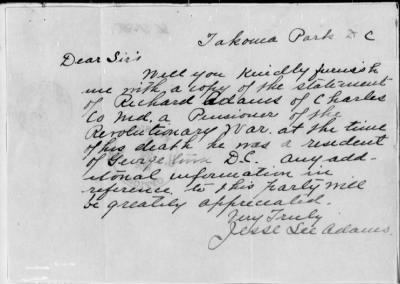 Takoma Park D C
Dear Sir's
Will you kindly furnish
me with a copy of the statement
of Richard Adams of Charles
Co Md, a Pensioner of the
Revolutionary War. at the time
of his death he was a resident
of George town D.C. any add-
itional information in
reference to this party will
be greatly appreciated.
Very Truly
Jesse Lee Adams.